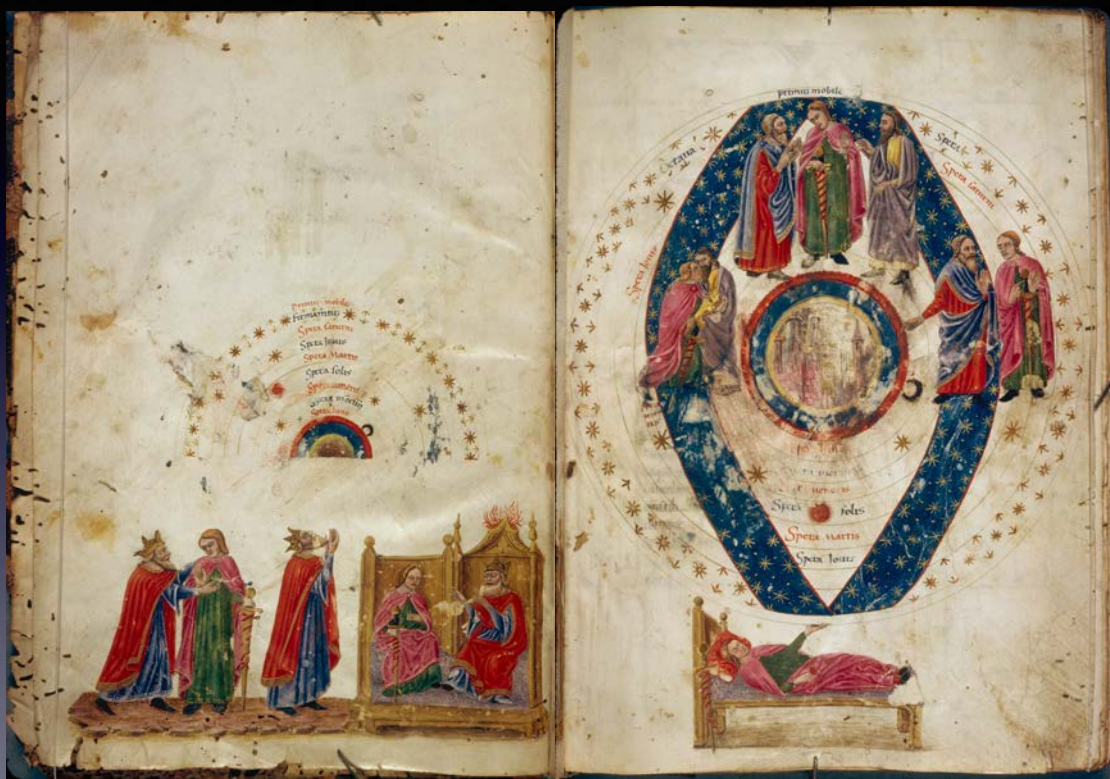 primus mobile
firmamentus
Spera saturni
Spera Jouis
Spera Martis
Spera solis
Spera ueneris
Spera lune
primus mobile
octaua
Spera
Spera saturni
Spera Jouis
ueneris
Spera solis
Spera Martis
Spera Jouis